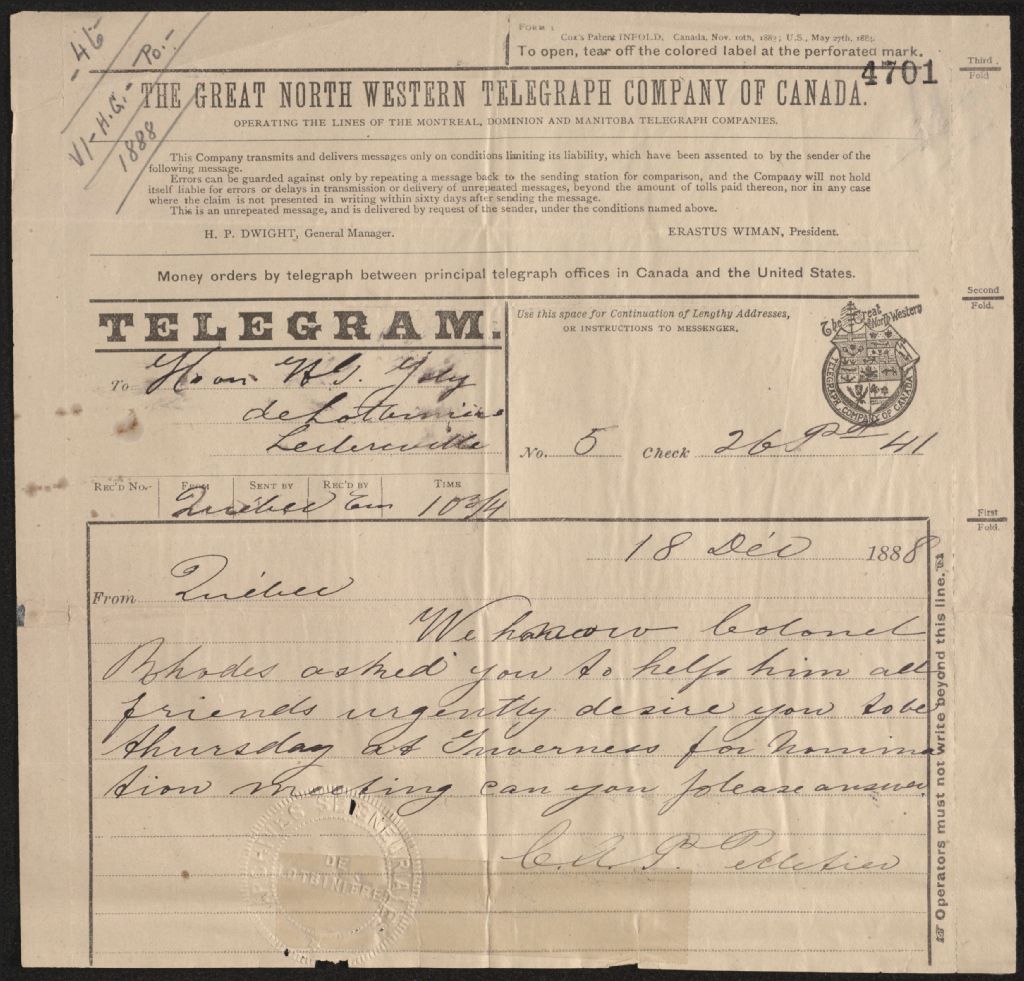 - 46 -
Po.-
VI - H.G.-
1888
FORM 1
Cox's Patent INFOLD, Canada, Nov. 10th, 1882; U.S., May 27th, 1884.
To open, tear off the colored label at the perforated mark.
4701
Third
Fold
THE GREAT NORTH WESTERN TELEGRAPH COMPANY OF CANADA.
OPERATING THE LINES OF THE MONTREAL, DOMINION AND MANITOBA TELEGRAPH COMPANIES.
This Company transmits and delivers messages only on conditions limiting its liability, which have been assented to by the sender of the
following message.
Errors can be guarded against only by repeating a message back to the sending station for comparison, and the Company will not hold
itself liable for errors or delays in transmission or delivery of unrepeated messages, beyond the amount of tolls paid thereon, nor in any case
where the claim is not presented in writing within sixty days after sending the message.
This is an unrepeated message, and is delivered by request of the sender, under the conditions named above.
H. P. DWIGHT, General Manager.
ERASTUS WIMAN, President.
Money orders by telegraph between principal telegraph offices in Canada and the United States.
Second
Fold.
TELEGRAM.
Use this space for Continuation of Lengthy Addresses,
OR INSTRUCTIONS TO MESSENGER.
The Great North Western
TELEGRAPH COMPANY OF CANADA
To Hon H.G. Joly
de Lotbiniere
Leclercville
No. 5 Check 26 Pd 41
REC'D No. FROM SENT BY REC'D BY TIME
Québec Em 10 3/4
First
Fold.
18 Déc 1888
From Québec
We know Colonel
Rhodes asked you to help him all
friends urgently desire you to be
thursday at Inverness for nomina
tion meeting can you please answer
C.A.P. Pelletier
Operators must not write beyond this line.
DE
LOTBINIERE